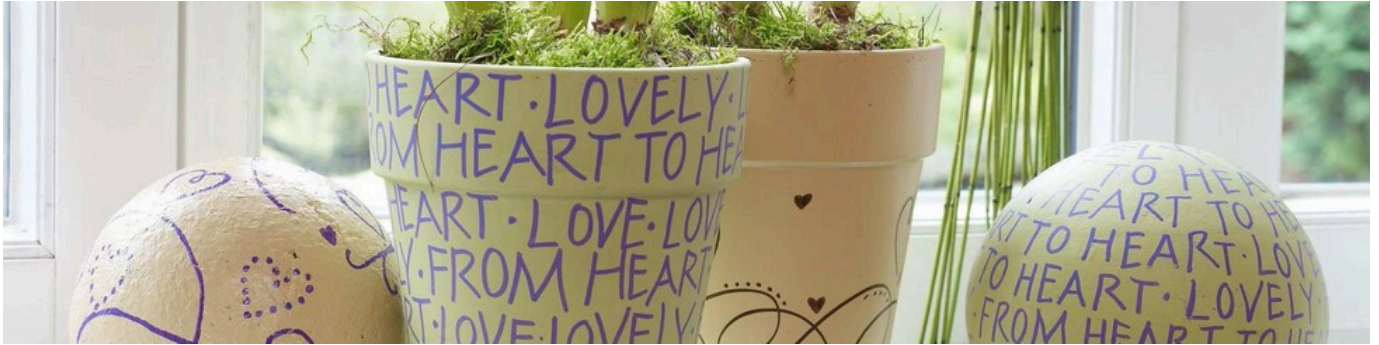 HEART · LOVELY ·
OM HEART TO HEA
HEART · LOVE · LOVE
Y · FROM HEART
RT · LOVE · LOVELY
ELY
TO HEA
HEART TO HE
RT TO HEART · LOVE
TO HEART · LOVELY
FROM HEART TO HE